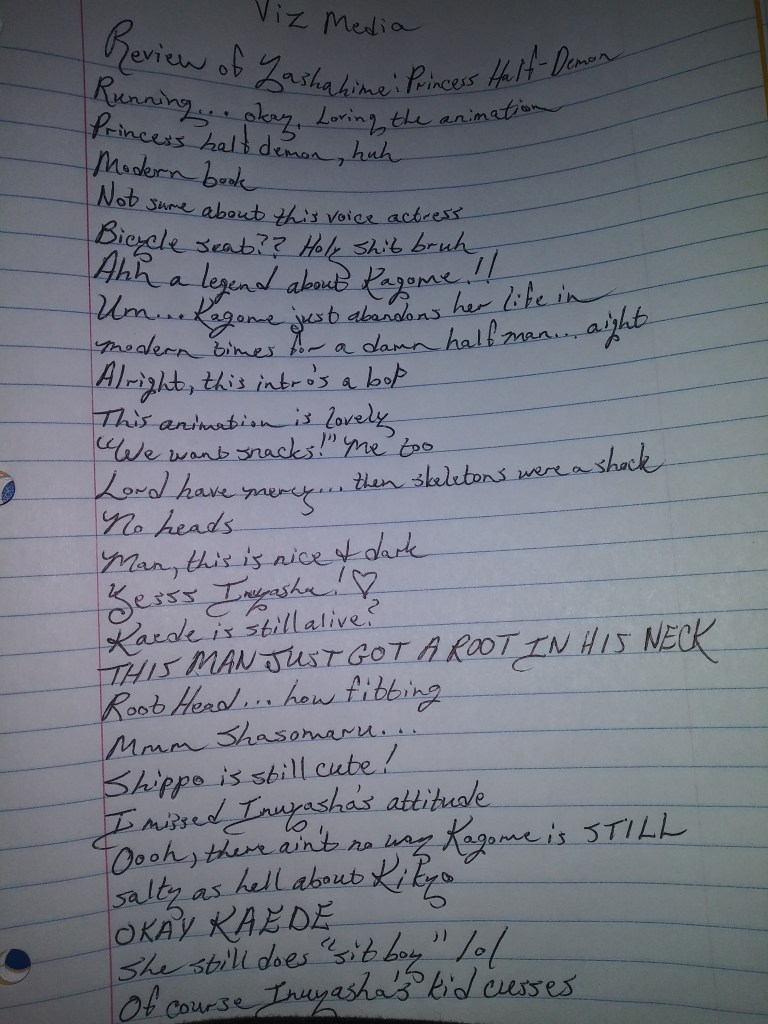 Viz Media
Review of Yashahime: Princess Half-Demon
Running... okay. Loving the animation
Princess half demon, huh
Modern book
Not sure about this voice actress
Bicycle seat?? Holy shit bruh
Ahh a legend about Kagome!!
Um... Kagome just abandons her life in
modern times for a damn half man... aight
Alright, this intro's a bop
This animation is lovely
"We want snacks!" Me too
Lord have mercy... then skeletons were a shock
No heads
Man, this is nice & dark
Yesss Inuyasha! ♡
Kaede is still alive?
THIS MAN JUST GOT A ROOT IN HIS NECK
Root Head... how fitting
Mmm Shasomaru...
Shippo is still cute!
I missed Inuyasha's attitude
Oooh, there ain't no way Kagome is STILL
salty as hell about Kikyo
OKAY KAEDE
She still does "sit boy" lol
Of course Inuyasha's kid cusses